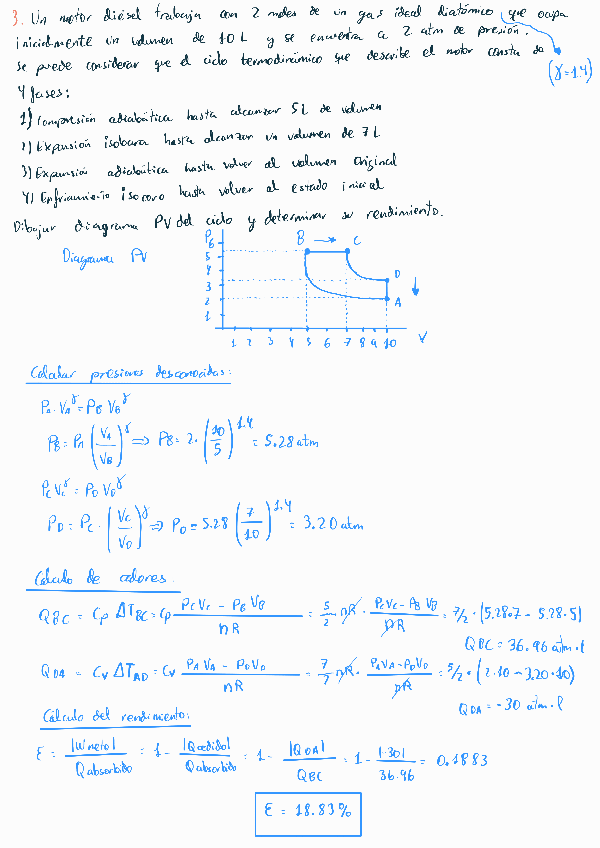 3. Un motor diésel trabaja con 2 moles de un gas ideal diatómico que ocupa
inicialmente un volumen de 10 L y se encuentra a 2 atm de presión.
se puede considerar que el ciclo termodinámico que describe el motor consta de
(γ=1.4)
4 fases:
1) Compresión adiabática hasta alcanzar 5 L de volumen
2) Expansión isobara hasta alcanzar un volumen de 7 L
3) Expansión adiabática hasta volver al volumen original
4) Enfriamiento isocoro hasta volver al estado inicial
Dibujar diagrama PV del ciclo y determinar su rendimiento.
Diagrama PV
P
6
5
4
3
2
1
B → C
D
A
1 2 3 4 5 6 7 8 9 10 V
Calcular presiones desconocidas:
PA·VA^γ = PB VB^γ
PB = PA (VA/VB)^γ ⟹ PB = 2·(10/5)^1.4 = 5.28 atm
PC VC^γ = PD VD^γ
PD = PC·(VC/VD)^γ ⟹ PD = 5.28 (7/10)^1.4 = 3.20 atm
Cálculo de calores.
QBC = Cp ΔTBC = Cp (PC VC − PB VB)/nR = 5/2 nR · (PC VC − PB VB)/nR = 7/2 · (5.28·7 − 5.28·5)
QBC = 36.96 atm·l
QDA = CV ΔTAD = CV (PA VA − PD VD)/nR = 7/7 nR · (PA VA − PD VD)/nR = 5/2 · (2·10 − 3.20·10)
QDA = −30 atm·l
Cálculo del rendimiento:
ε = |Wneto|/Qabsorbido = 1 − |Qcedido|/Qabsorbido = 1 − |QDA|/QBC = 1 − |-30|/36.96 = 0.1883
ε = 18.83%